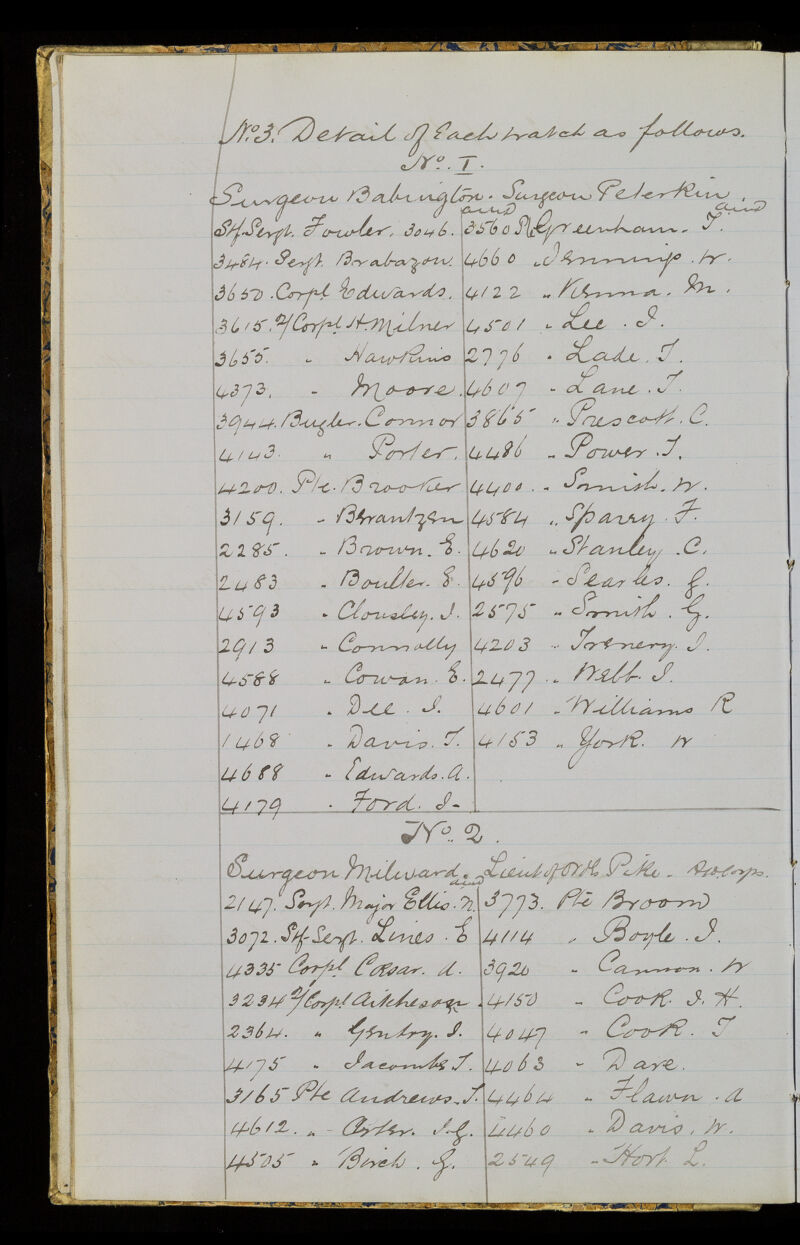 No. 3. Detail of Each watch as follows.
No. I.
Surgeon Babington. Surgeon Peterkin.
and and
Stf Sergt. Fowler. 3046. 3560 Pte Greenham. T.
3484. Sergt. Brabazon. 4660 " Jennings. W.
3650. Corpl Edwards. 4122 " Vienna. M.
3615. 2/Corpl H. Milner 4501 " Lee. J.
3655. " Hawkins 2776 " Lade. T.
4373. " Moore. 4607 " Lane. T.
3944. Bugler. Connor 3865 " Prescott. C.
4143. " Porter. 4486 " Power. T.
4200. Pte. Brooker 4400. " Smith. W.
3159. " Berantzen 4584 " Sparey. F.
2285. " Brown. E. 4620 " Stanley. C.
2483 " Boulter. E 4596 " Searles. G.
4593 " Clousley. J. 2575 " Smith. G.
2913 " Connolly 4203 " Trenery. J.
4588 " Cowan. E. 2477 " Webb. J.
4071 " Dee. J. 4601 " Williams R
1468 " Davis. T. 4153 " York. W
4688 " Edwards. A.
4179 " Ford. J.
No. 2.
Surgeon Milward. Lieut of Orde Pike. A.H. Corps.
and
2147. Sergt. Major Ellis. N. 3773. Pte Broom
3072. Stf Sergt. Lines. E 4114 " Boyle. J.
4335 Corpl Cæsar. A. 3920 " Cannon. W
3234 2/Corpl Aitcheson. 4150 " Cook. J. H.
2364. " Gentry. J. 4047 " Cook. T
4175 " Jacombs T. 4063 " Dare.
3165 Pte Andrews. T. 4464 " Flawn. A
4612. " Arter. J. G. 4460 " Davis. W.
4505 " Birch. G. 2549 " Hort L.